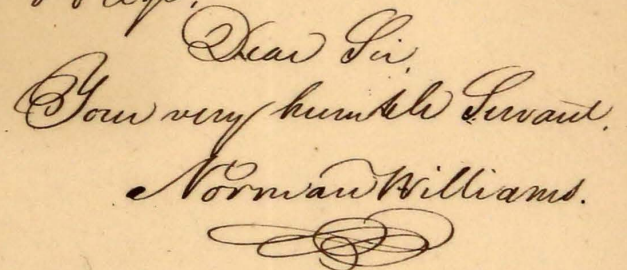 Dear Sir,
Your very humble Servant.
Norman Williams.